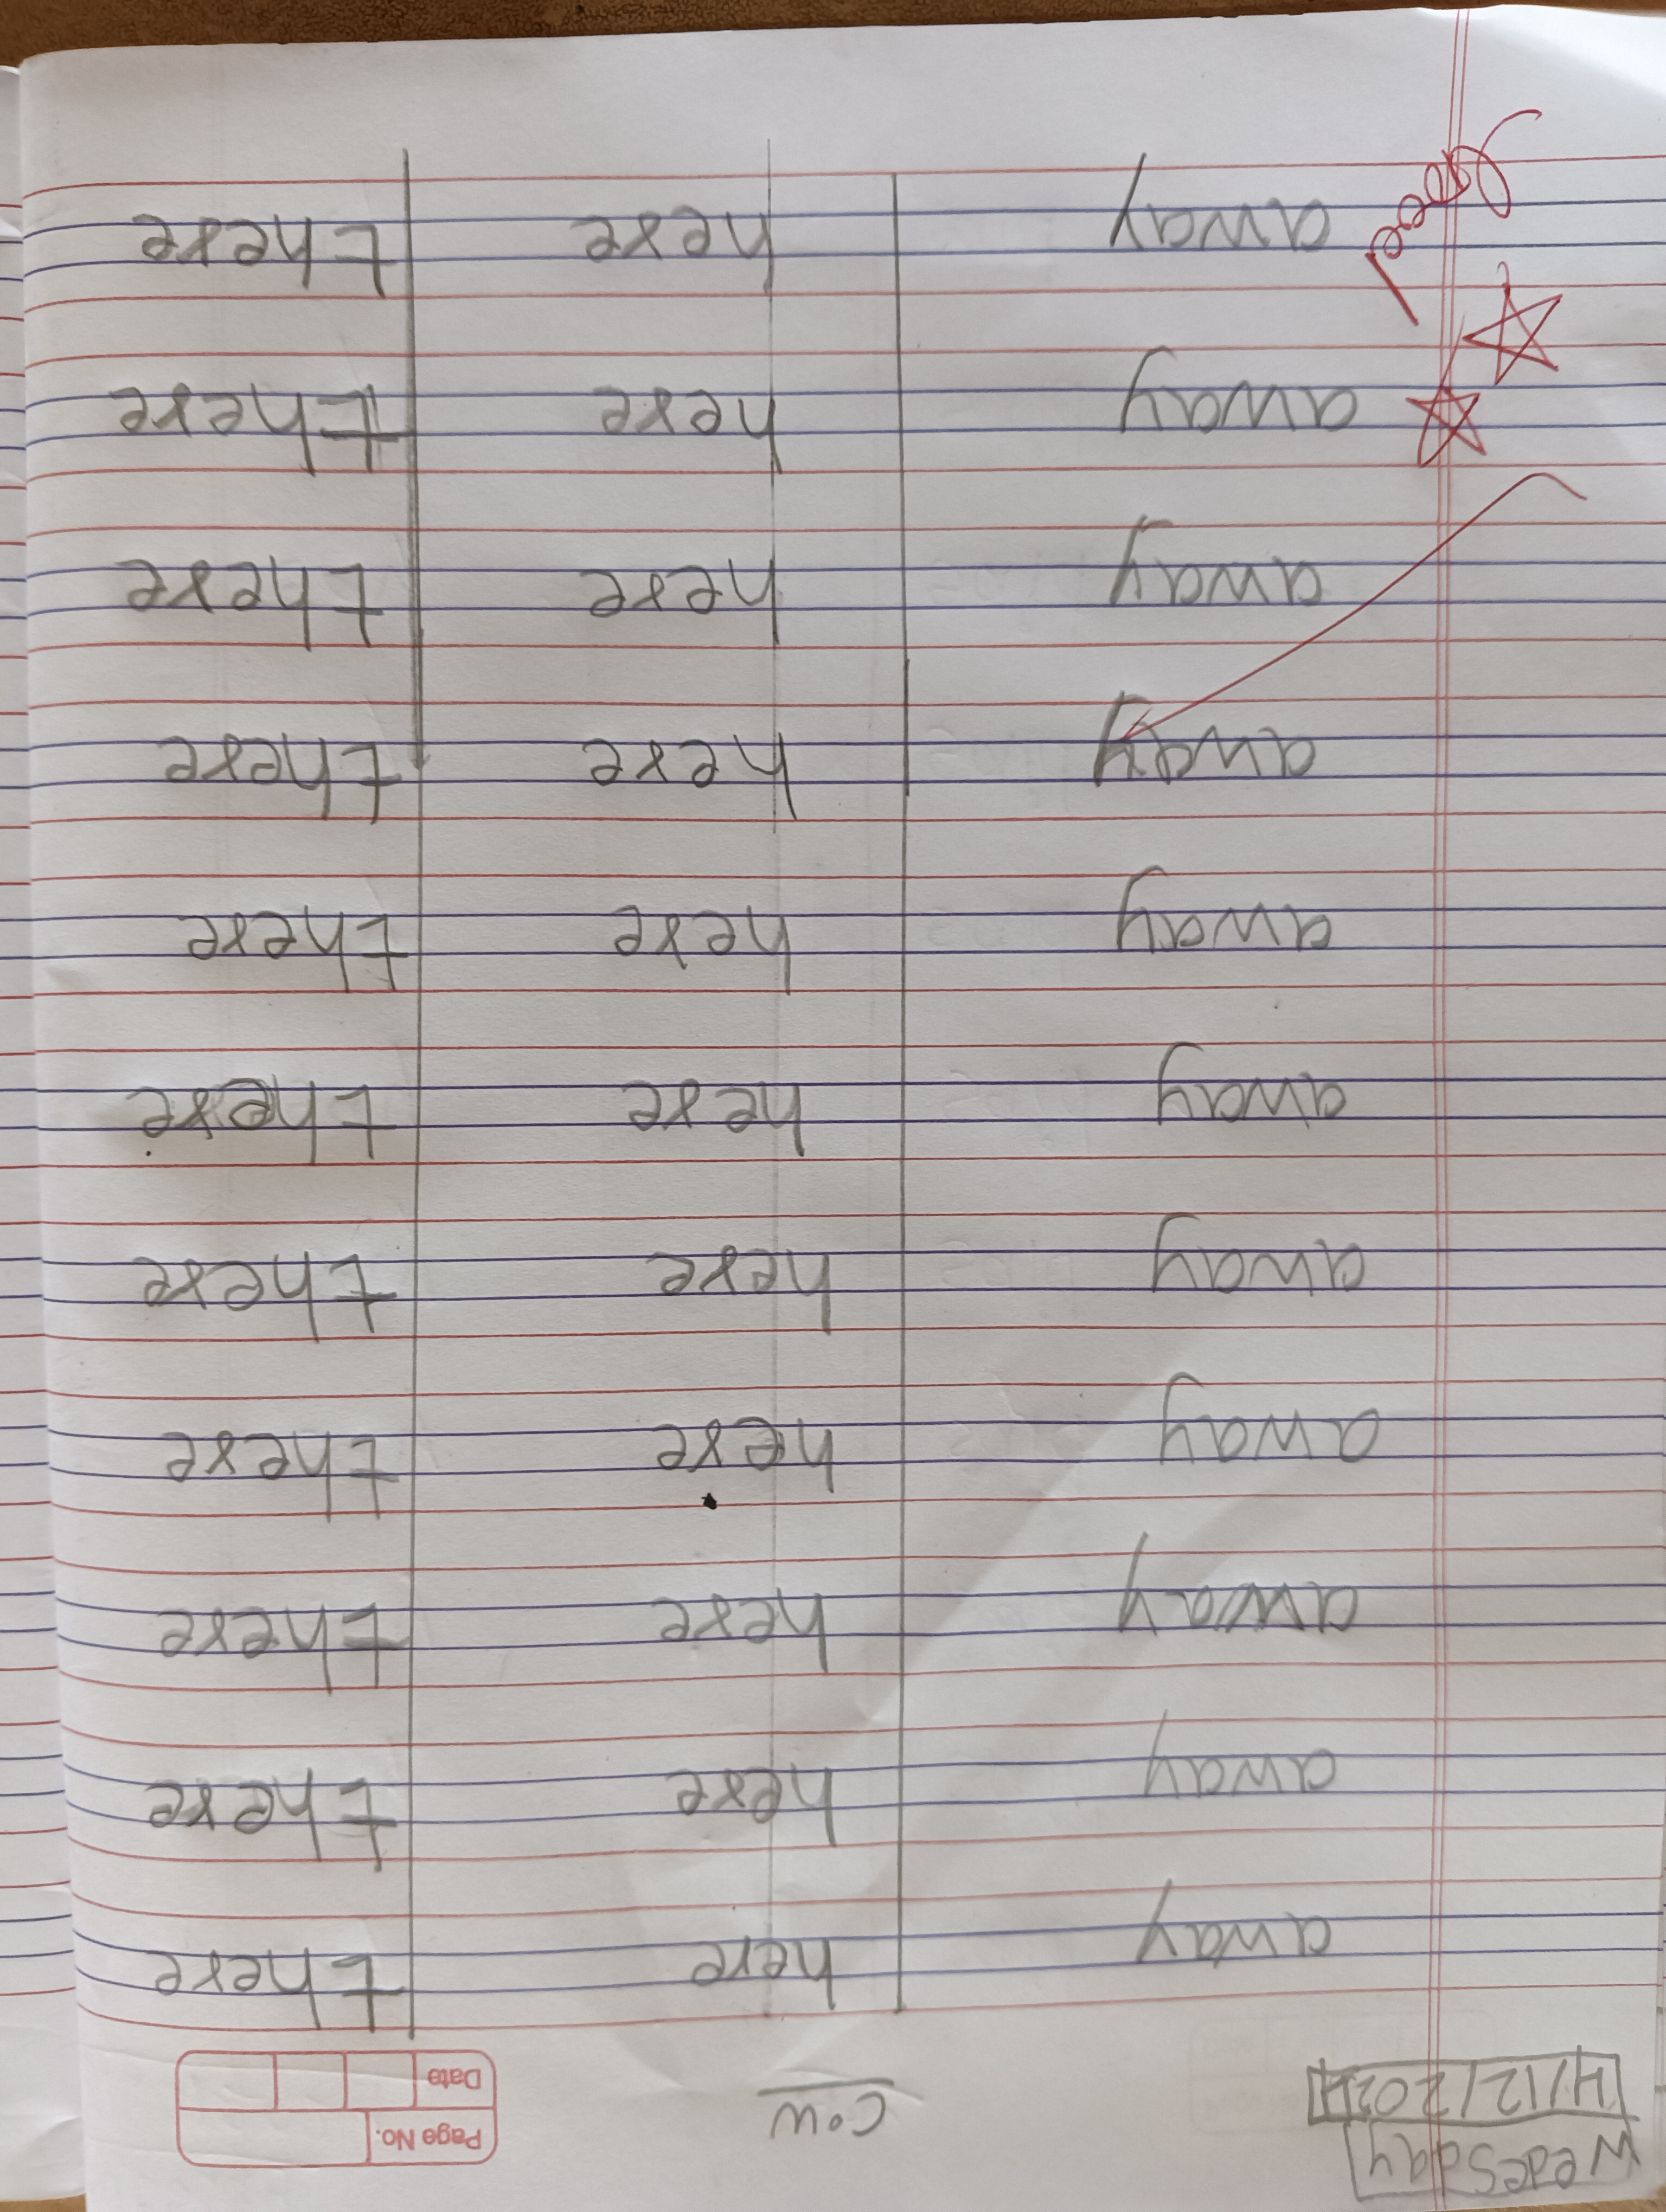 Wedesday
4/12/2024
C.W
Page No.
Date
away here there
away here there
away here there
away here there
away here there
away here there
away here there
away here there
away here there
away here there
away here there
Good